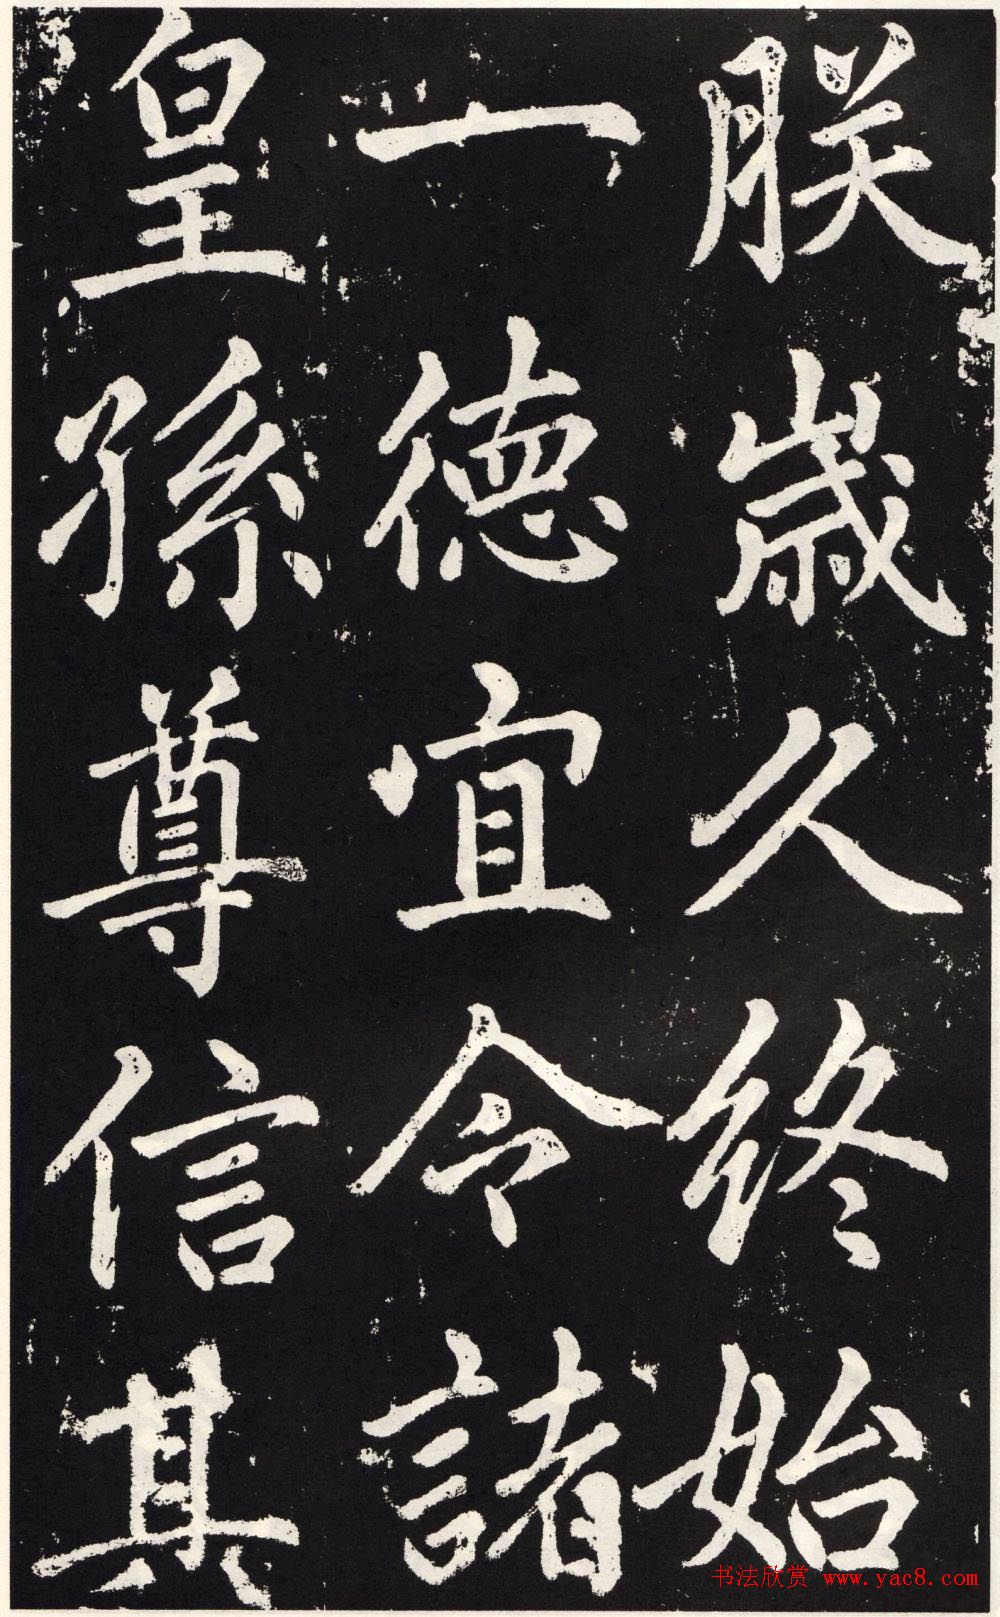 朕歲久終始
一德宜令諸
皇孫尊信其
书法欣赏 www.yac8.com